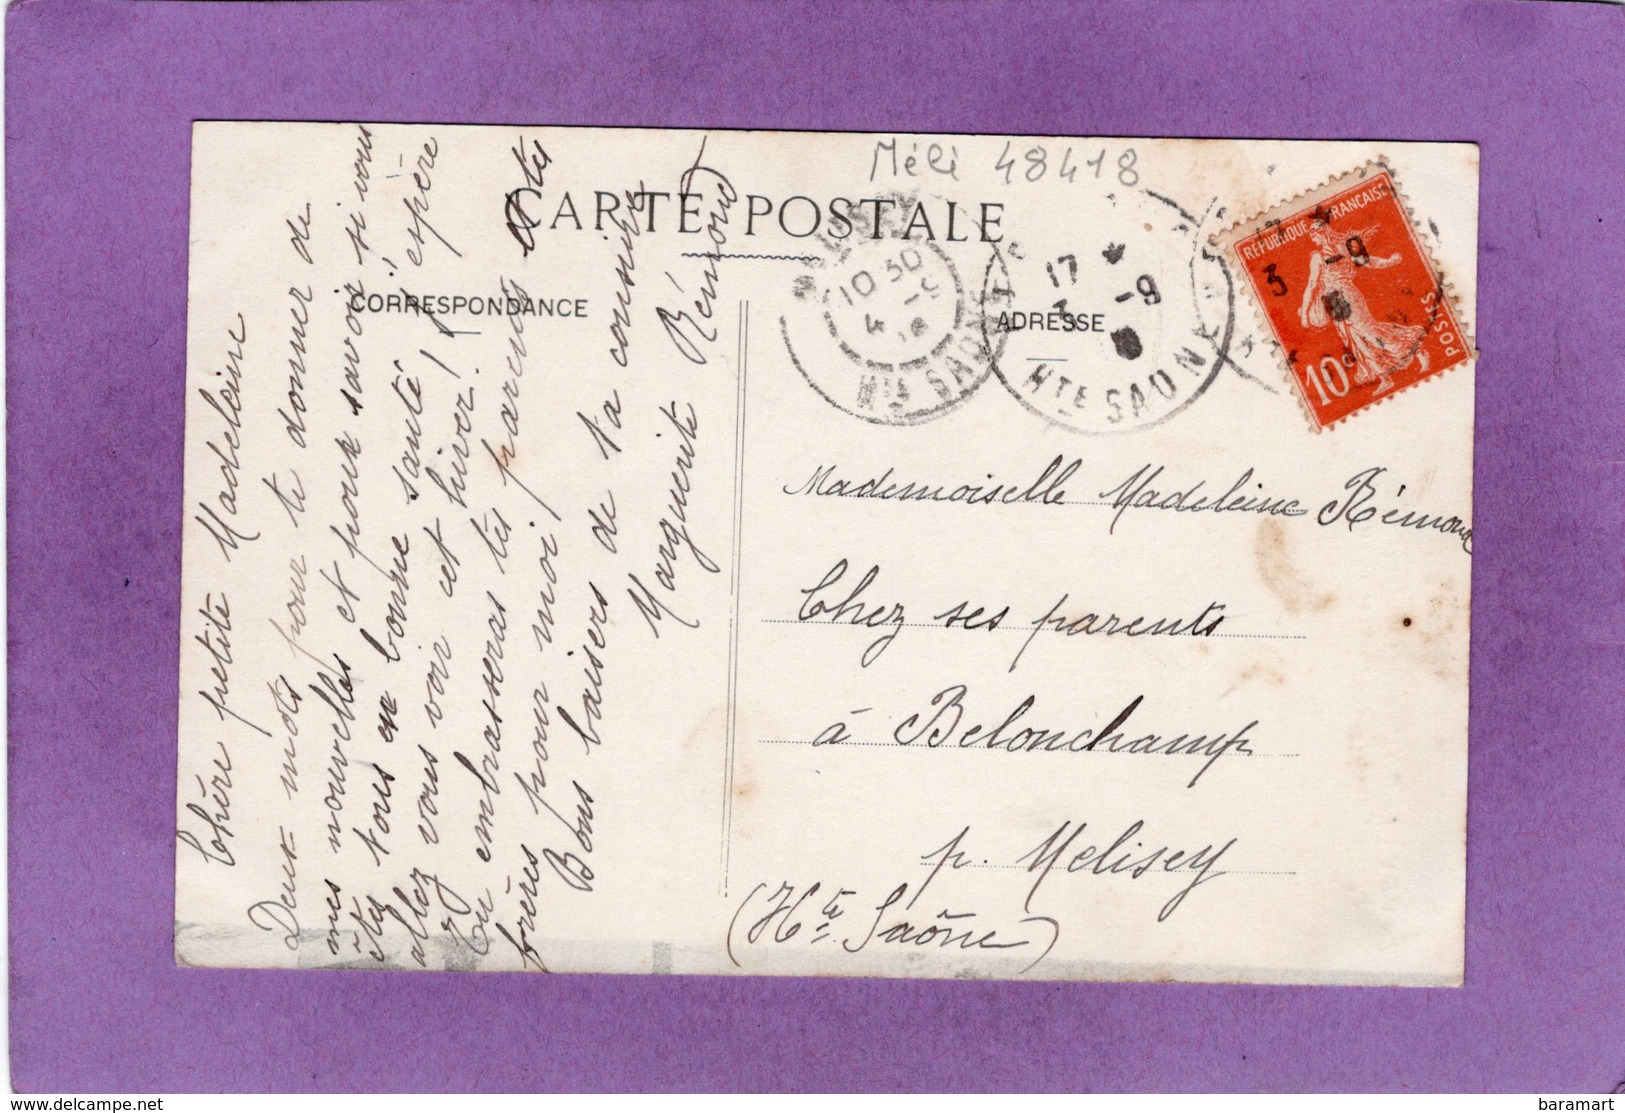 Méli 48418
CARTE POSTALE
CORRESPONDANCE
ADRESSE
Chère petite Madeleine
Deux mots pour te donner de
mes nouvelles et pour savoir si vous
êtes tous en bonne santé! j'espère
allez vous voir cet hiver!
Tu embrasseras tes parents et tes
frères pour moi
Bons baisers de ta cousine
Marguerite Rémond
Mademoiselle Madeleine Rémond
Chez ses parents
à Belonchamp
p. Melisey
(Hte Saône)
10 30
4
Hte SAONE
17 *
3 -9
Hte SAONE
3 -9
REPUBLIQUE FRANÇAISE
POSTES
10c
baramart